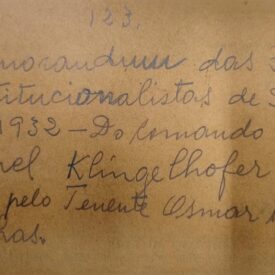 123.
morandum das
titucionalistas de
1932 - Do Comando
nel Klingelhofer
pelo Tenente Osmar
as.